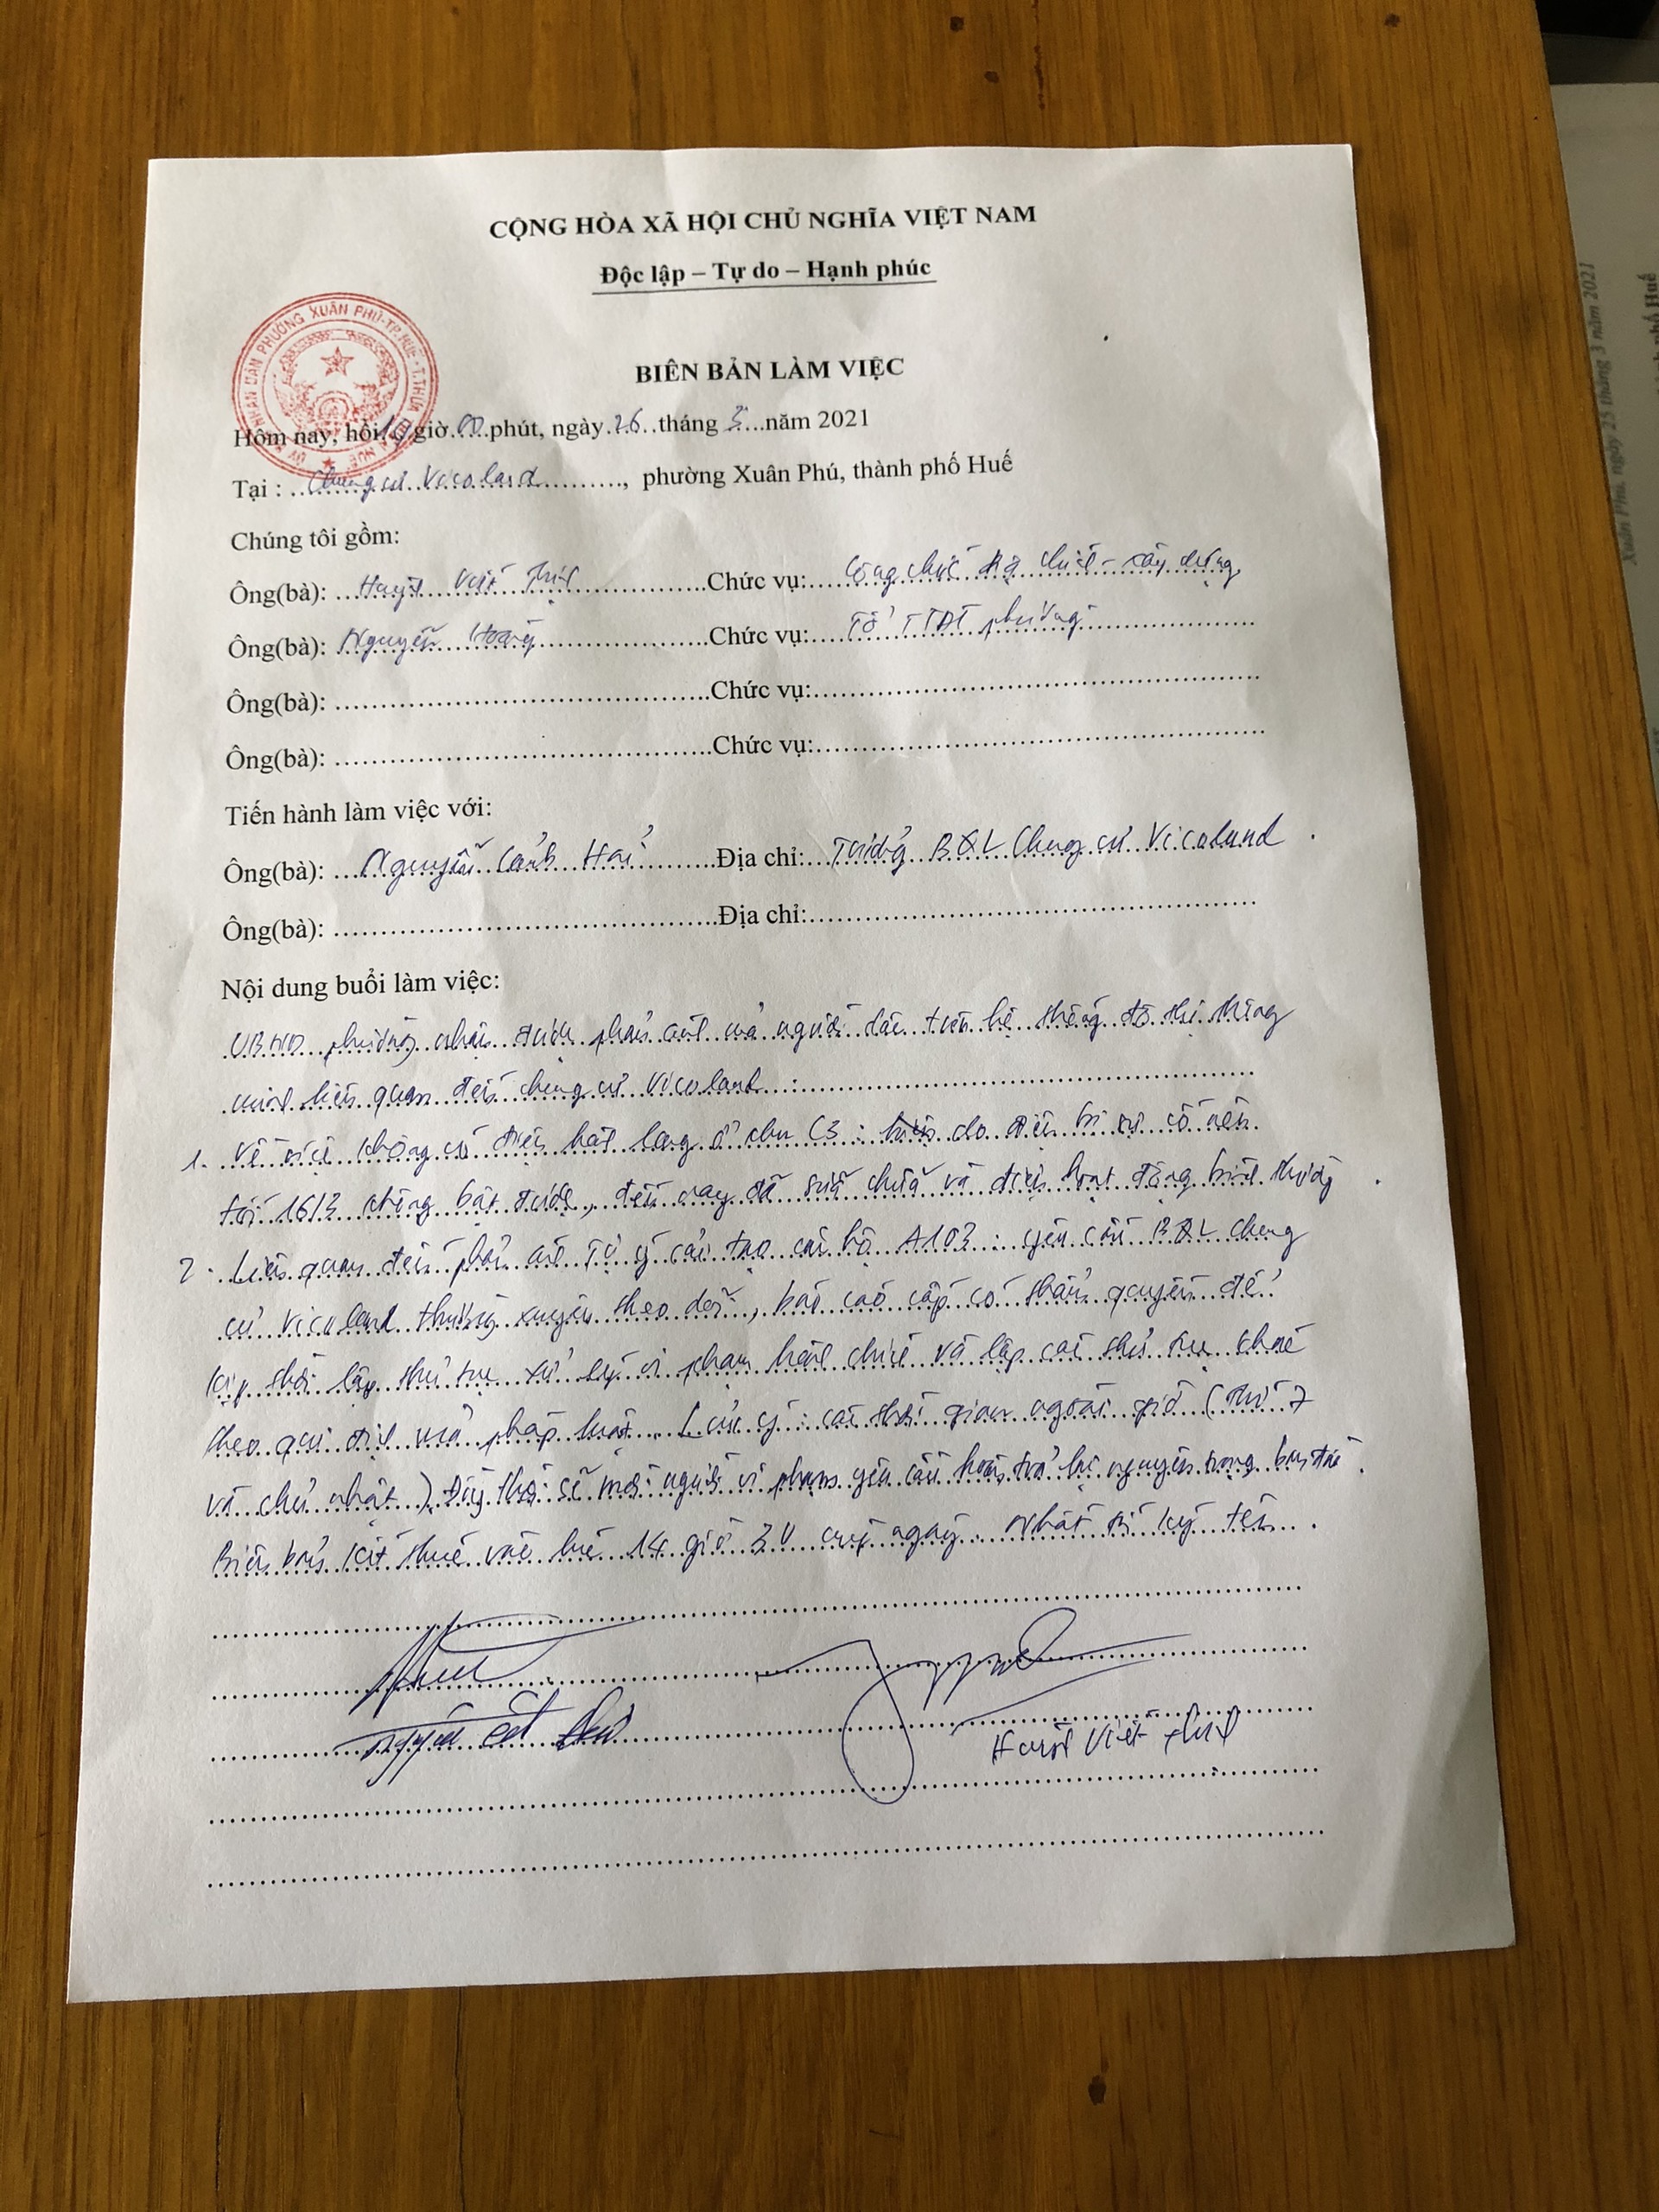 CỘNG HÒA XÃ HỘI CHỦ NGHĨA VIỆT NAM
Độc lập – Tự do – Hạnh phúc
BIÊN BẢN LÀM VIỆC
Hôm nay, hồi giờ 00 phút, ngày 26 tháng 3 năm 2021
Tại : Chung cư Vicoland, phường Xuân Phú, thành phố Huế
Chúng tôi gồm:
Ông(bà): Huỳnh Viết Chức vụ: Công chức địa chính - xây dựng
Ông(bà): Nguyễn Hoàng Chức vụ: Tổ TTĐT phường
Ông(bà): Chức vụ:
Ông(bà): Chức vụ:
Tiến hành làm việc với:
Ông(bà): Nguyễn Hải Địa chỉ: Trưởng BQL Chung cư Vicoland.
Ông(bà): Địa chỉ:
Nội dung buổi làm việc:
UBND phường nhận được phản ánh của người dân trên hệ thống đô thị thông
minh liên quan đến chung cư Vicoland :
1. Về việc không có điện hành lang ở khu C3 : do điện bị sự cố nên
tối 16/3 không bật được, đến nay đã sửa chữa và điện hoạt động bình thường.
2. Liên quan đến phản ánh Tự ý cải tạo căn hộ A103 : yêu cầu BQL chung
cư Vicoland thường xuyên theo dõi, báo cáo cấp có thẩm quyền để
kịp thời lập thủ tục xử lý vi phạm hành chính và lập các thủ tục khác
theo qui định của pháp luật. Lưu ý : các thời gian ngoài giờ (Thứ 7
và chủ nhật). Đồng thời sẽ mời người vi phạm yêu cầu hoàn trả lại nguyên trạng ban đầu.
Biên bản kết thúc vào lúc 14 giờ 30 cùng ngày. Nhất trí ký tên.
Huỳnh Viết
Xuân Phú, ngày 25 tháng 3 năm 2021
phố Huế